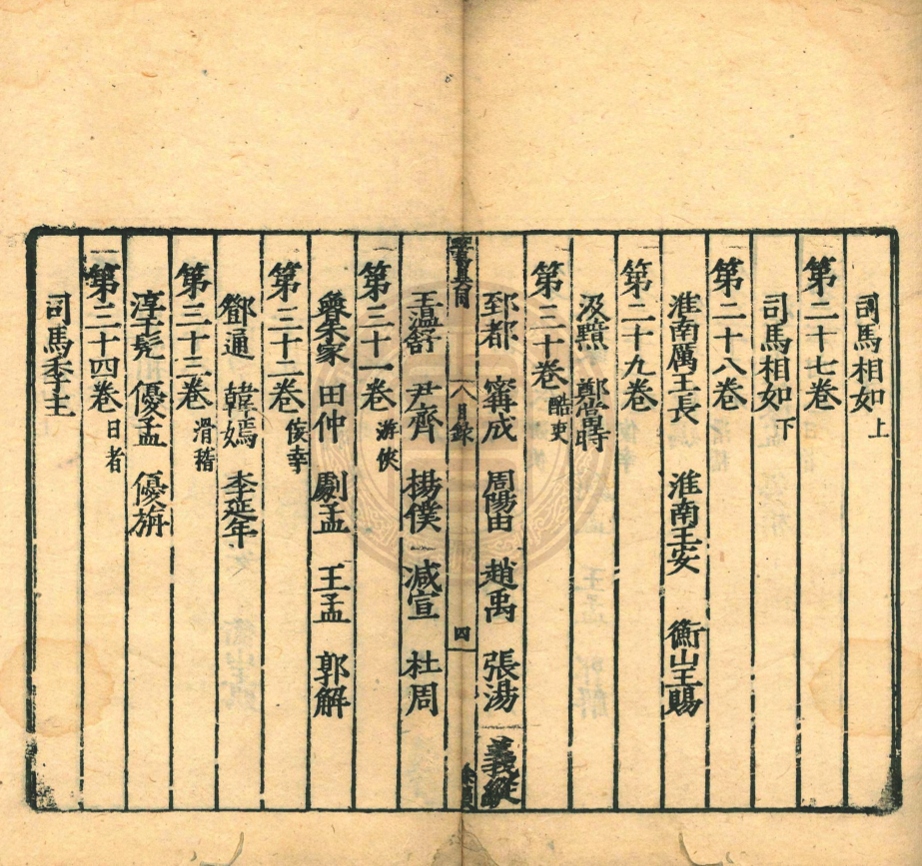 司馬相如上
第二十七卷
司馬相如下
第二十八卷
淮南厲王長 淮南王安 衡山王賜
第二十九卷
汲黯 鄭當時
第三十卷酷吏
郅都 甯成 周陽由 趙禹 張湯 義縱
八目錄 四
王溫舒 尹齊 楊僕 減宣 杜周
第三十一卷游俠
魯朱家 田仲 劇孟 王孟 郭解
第三十二卷佞幸
鄧通 韓嫣 李延年
第三十三卷滑稽
淳于髡 優孟 優旃
第三十四卷日者
司馬季主